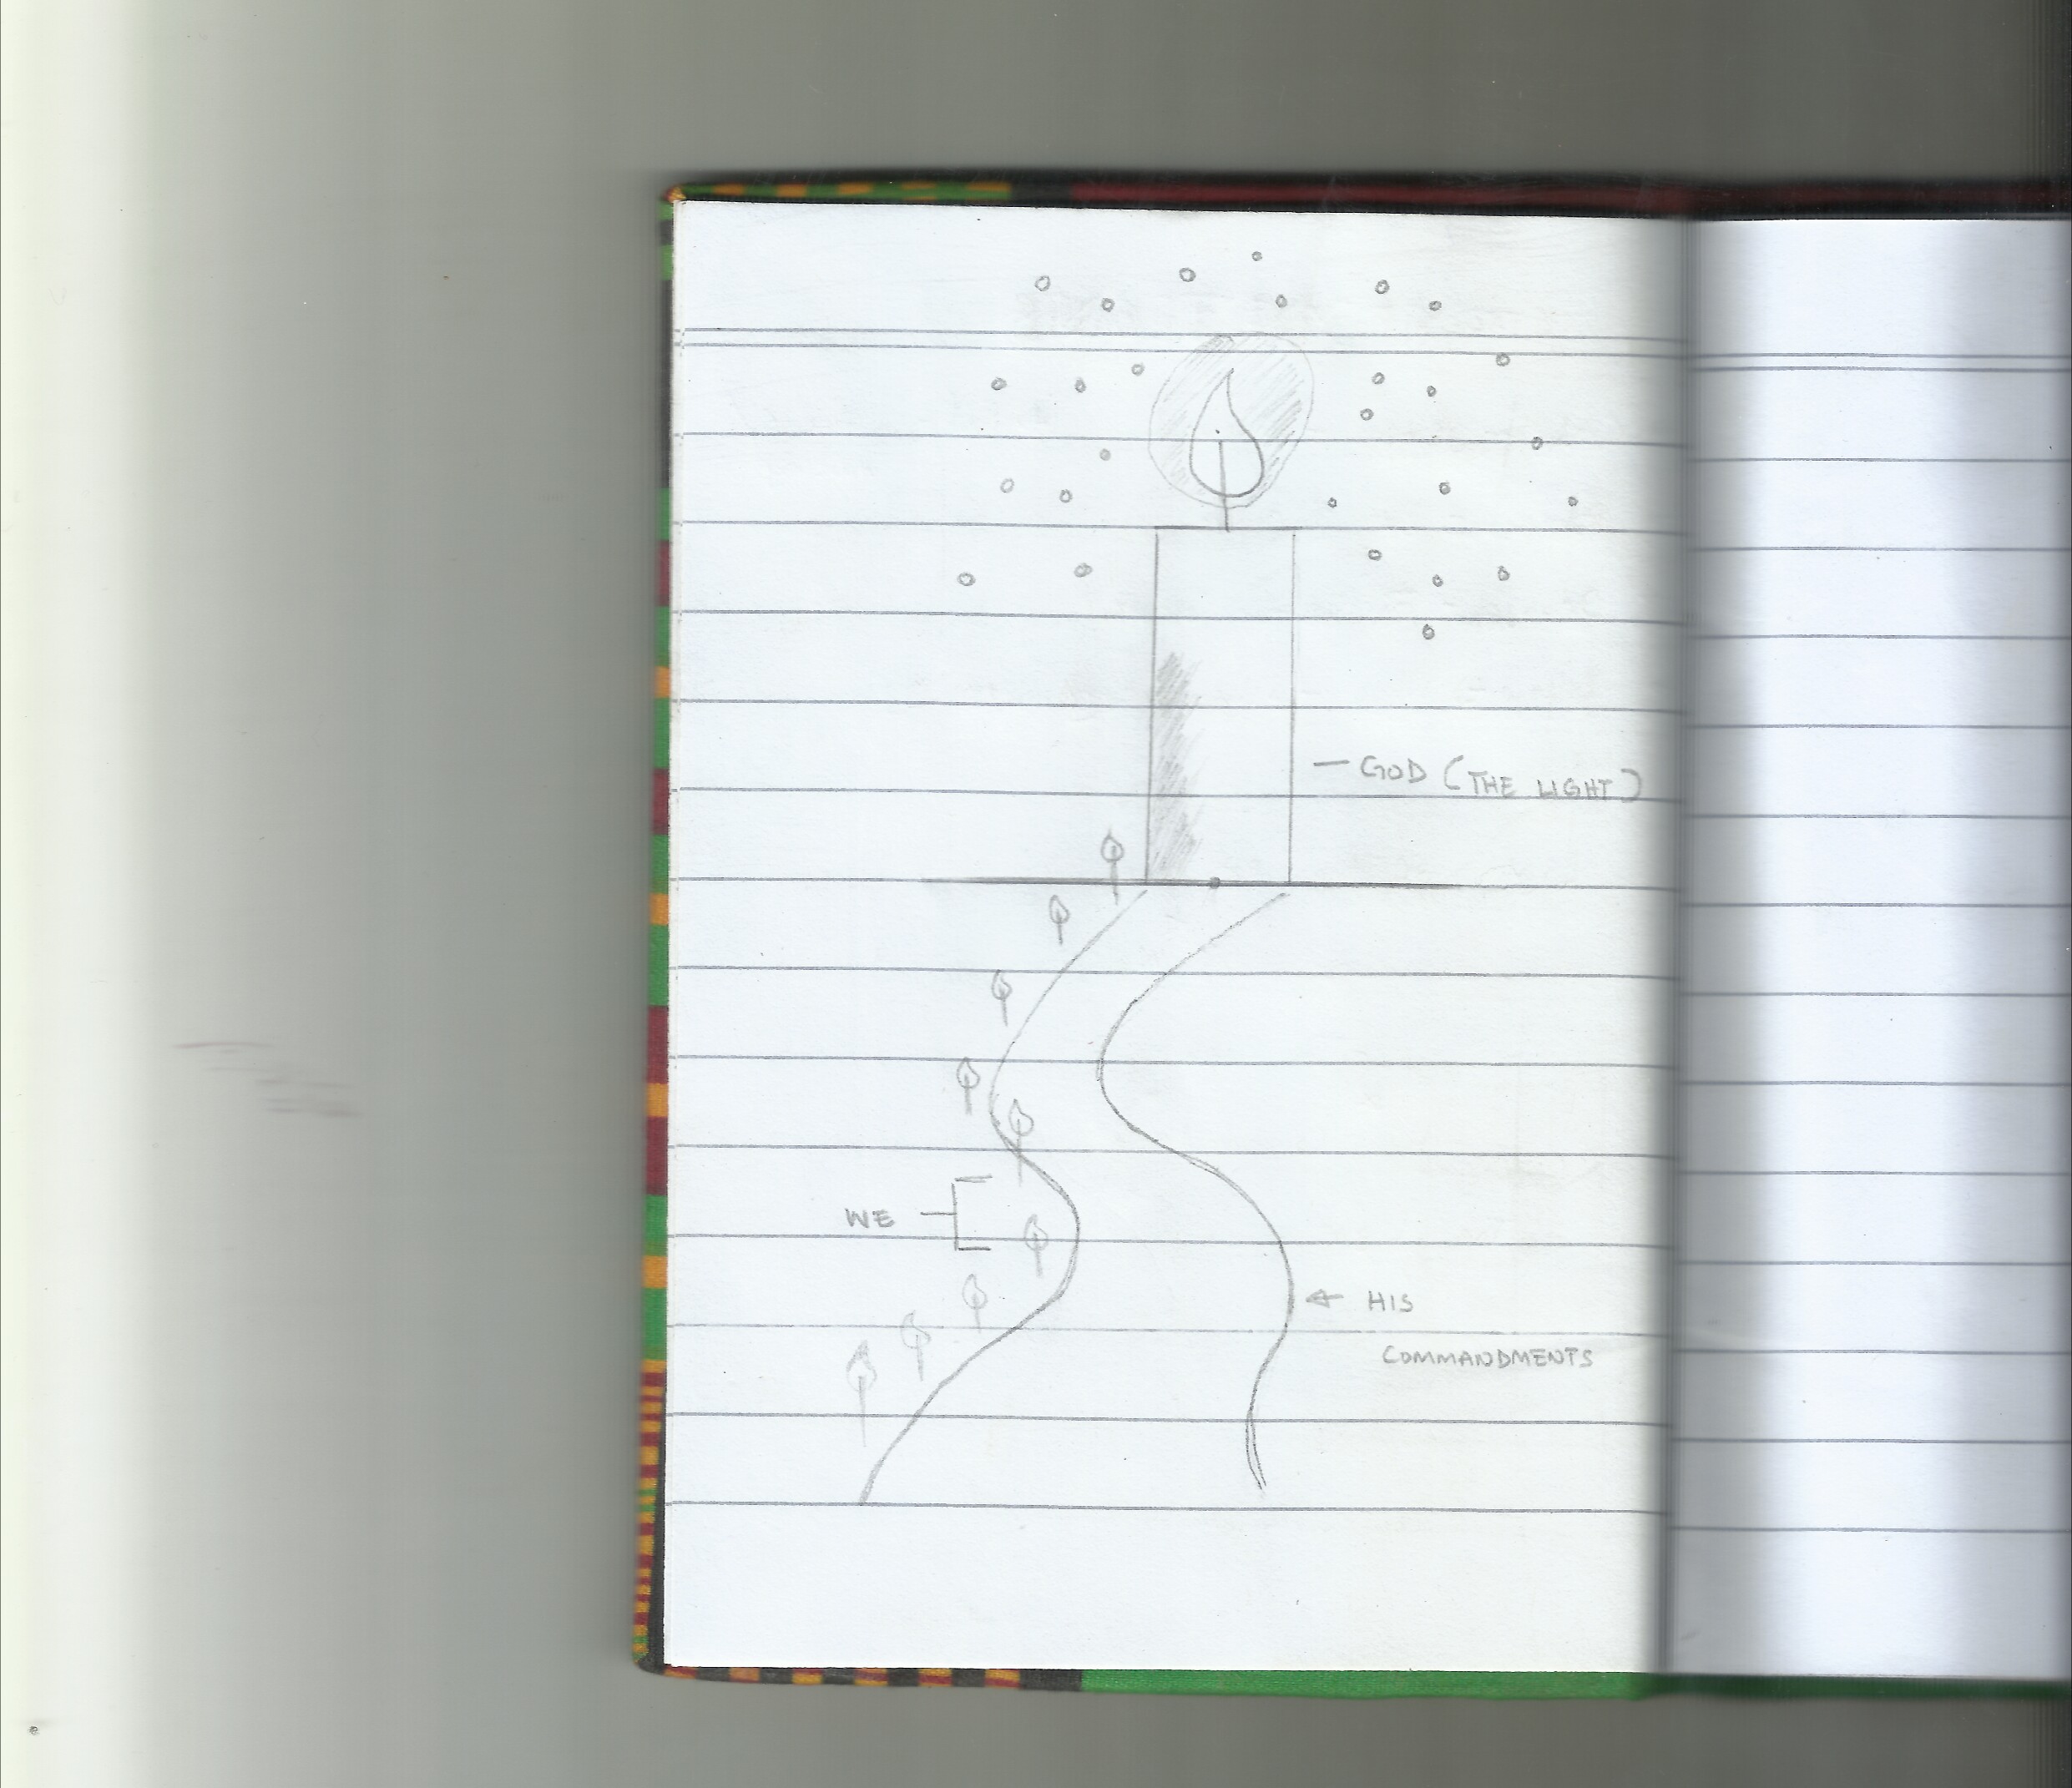 — GOD (THE LIGHT)
WE
← HIS
COMMANDMENTS